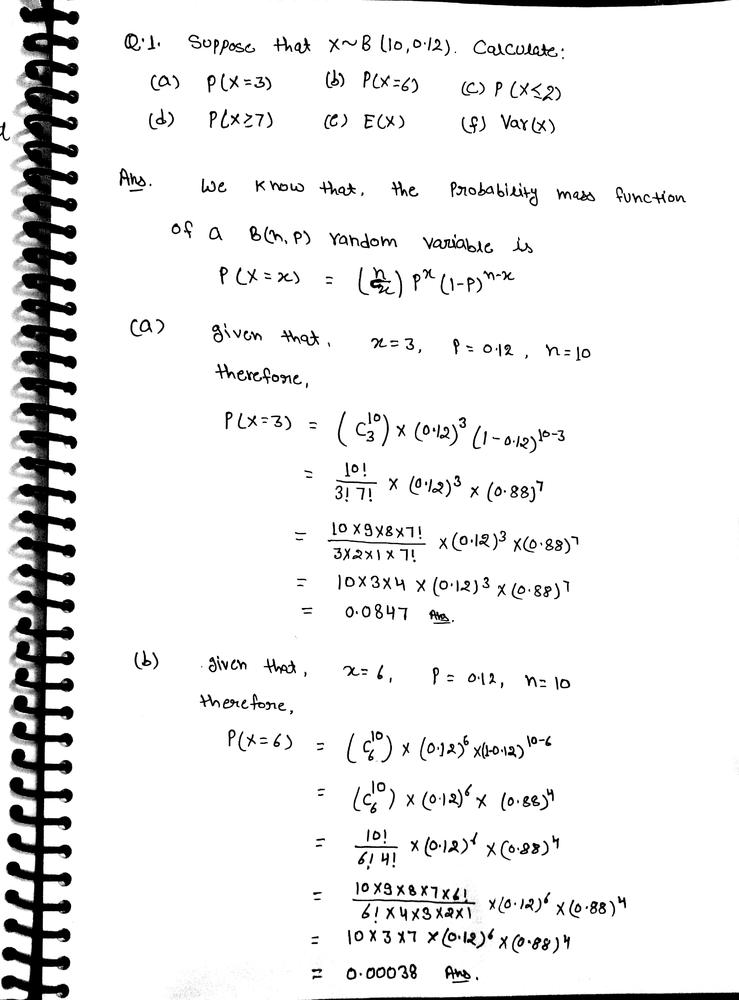 Q.1. Suppose that X~B (10, 0.12). Calculate:
(a) P(X=3) (b) P(X=6) (c) P(X≤2)
(d) P(X≥7) (e) E(X) (f) Var(x)
Ans. We know that, the probability mass function
of a B(n, P) random variable is
P(X=x) = (n/x) P^x (1-P)^{n-x}
(a) given that, x=3, P=0.12, n=10
therefore,
P(X=3) = (C^{10}_3) × (0.12)^3 (1-0.12)^{10-3}
= 10!/3! 7! × (0.12)^3 × (0.88)^7
= 10×9×8×7!/3×2×1×7! × (0.12)^3 × (0.88)^7
= 10×3×4 × (0.12)^3 × (0.88)^7
= 0.0847 Ans.
(b) given that, x=6, P=0.12, n=10
therefore,
P(X=6) = (C^{10}_6) × (0.12)^6 × (1-0.12)^{10-6}
= (C^{10}_6) × (0.12)^6 × (0.88)^4
= 10!/6! 4! × (0.12)^6 × (0.88)^4
= 10×9×8×7×6!/6!×4×3×2×1 × (0.12)^6 × (0.88)^4
= 10×3×7 × (0.12)^6 × (0.88)^4
= 0.00038 Ans.